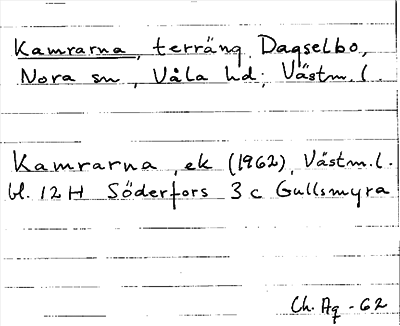 Kamrarna, terräng Dagselbo,
Nora sn, Våla hd, Västm. l.
Kamrarna, ek (1962), Västm. l.
bl. 12 H Söderfors 3 c Gullsmyra
Ch. Ag -62